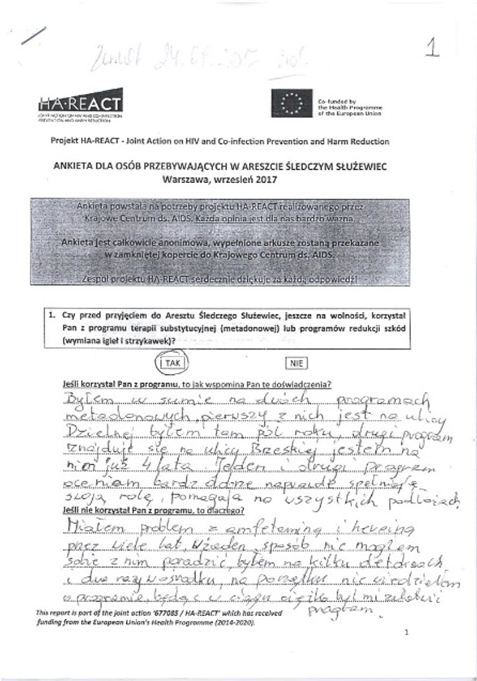 1
HA-REACT
JOINT ACTION ON HIV AND CO-INFECTION
PREVENTION AND HARM REDUCTION
Co-funded by
the Health Programme
of the European Union
Projekt HA-REACT - Joint Action on HIV and Co-infection Prevention and Harm Reduction
ANKIETA DLA OSÓB PRZEBYWAJĄCYCH W ARESZCIE ŚLEDCZYM SŁUŻEWIEC
Warszawa, wrzesień 2017
Ankieta powstała na potrzeby projektu HA-REACT realizowanego przez
Krajowe Centrum ds. AIDS. Każda opinia jest dla nas bardzo ważna.
Ankieta jest całkowicie anonimowa, wypełnione arkusze zostaną przekazane
w zamkniętej kopercie do Krajowego Centrum ds. AIDS.
Zespół projektu HA-REACT serdecznie dziękuje za każdą odpowiedź!
1. Czy przed przyjęciem do Aresztu Śledczego Służewiec, jeszcze na wolności, korzystał
Pan z programu terapii substytucyjnej (metadonowej) lub programów redukcji szkód
(wymiana igieł i strzykawek)?
TAK NIE
Jeśli korzystał Pan z programu, to jak wspomina Pan te doświadczenia?
Byłem w sumie na dwóch programach
metadonowych, pierwszy z nich jest na ulicy
Dzielnej byłem tam pół roku, drugi program
znajduje się na ulicy Brzeskiej jestem na
nim już 4 lata. Jeden i drugi program
oceniam bardz dobrze naprawdę spełniają
swoją rolę, pomagają na wszystkich
Jeśli nie korzystał Pan z programu, to dlaczego?
Miałem problem z amfetaminą i heroiną
przez wiele lat, w żaden sposób nie mogłem
sobie z nim poradzić, byłem na kilku detoksach
i dwa razy w ośrodku, na początku nie wiedziałem
o programie, będąc w ciągu ciężko był mi załatwić
program.
This report is part of the joint action '677085 / HA-REACT' which has received
funding from the European Union's Health Programme (2014-2020).
1